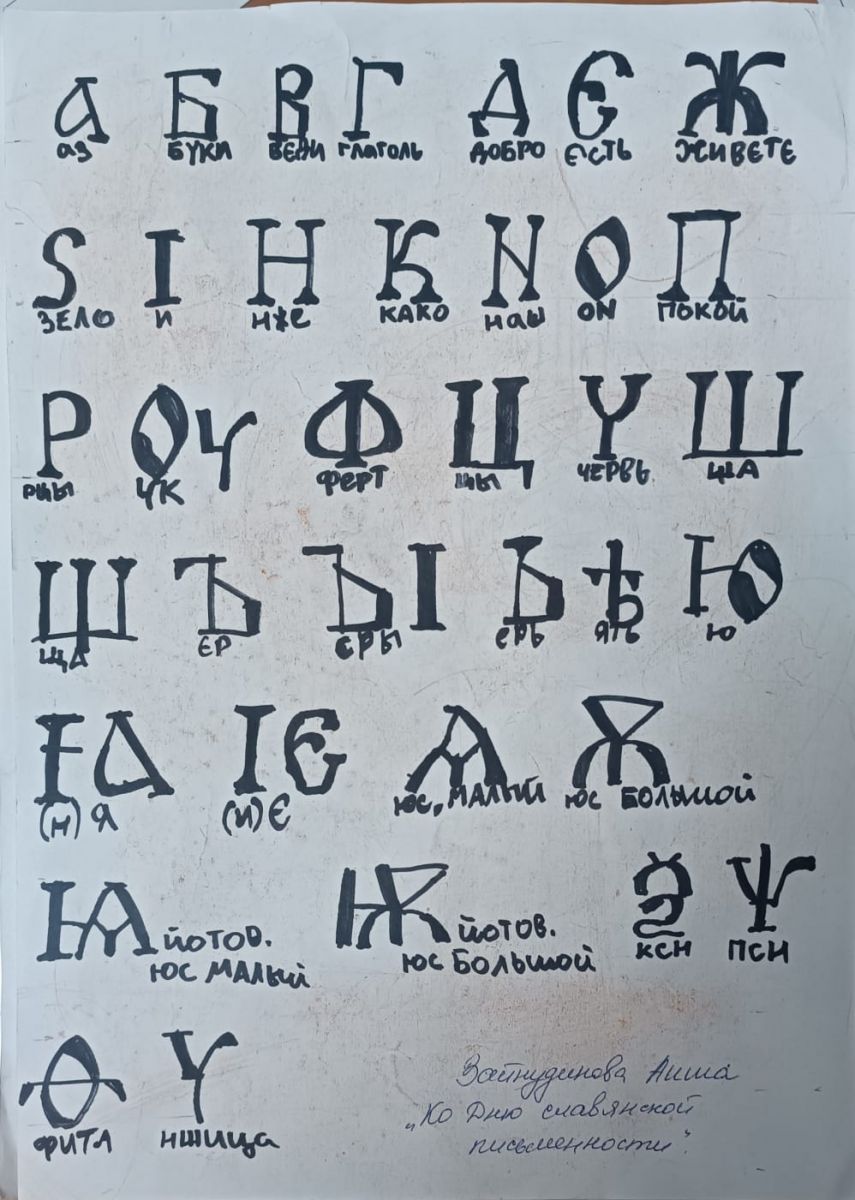 а Б В Г Д Є Ж
аз БУКИ ВЕДИ ГЛАГОЛЬ ДОБРО ЄСТЬ ЖИВЕТЕ
Ѕ І Н К N О П
ЗЕЛО И ИЖЕ КАКО НАШ ОN ПОКОЙ
Р ОУ Ф Ц Ч Ш
РЦЫ УК ФЕРТ ЦЫ ЧЕРВЬ ША
Щ Ъ ЪІ Ь Ѣ Ю
ЩА ЄР ЄРЫ ЄРЬ ЯТЬ Ю
ІА ІЄ Ѧ Ѫ
(И) Я (И) Є ЮС МАЛЫЙ ЮС БОЛЬШОЙ
Ѩ ЙОТОВ. Ѭ ЙОТОВ. Ѯ Ѱ
ЮС МАЛЫЙ ЮС БОЛЬШОЙ КСИ ПСИ
Ѳ Ѵ
ФИТА ИЖИЦА
Зайнудинова Аиша
„Ко Дню славянской
письменности".